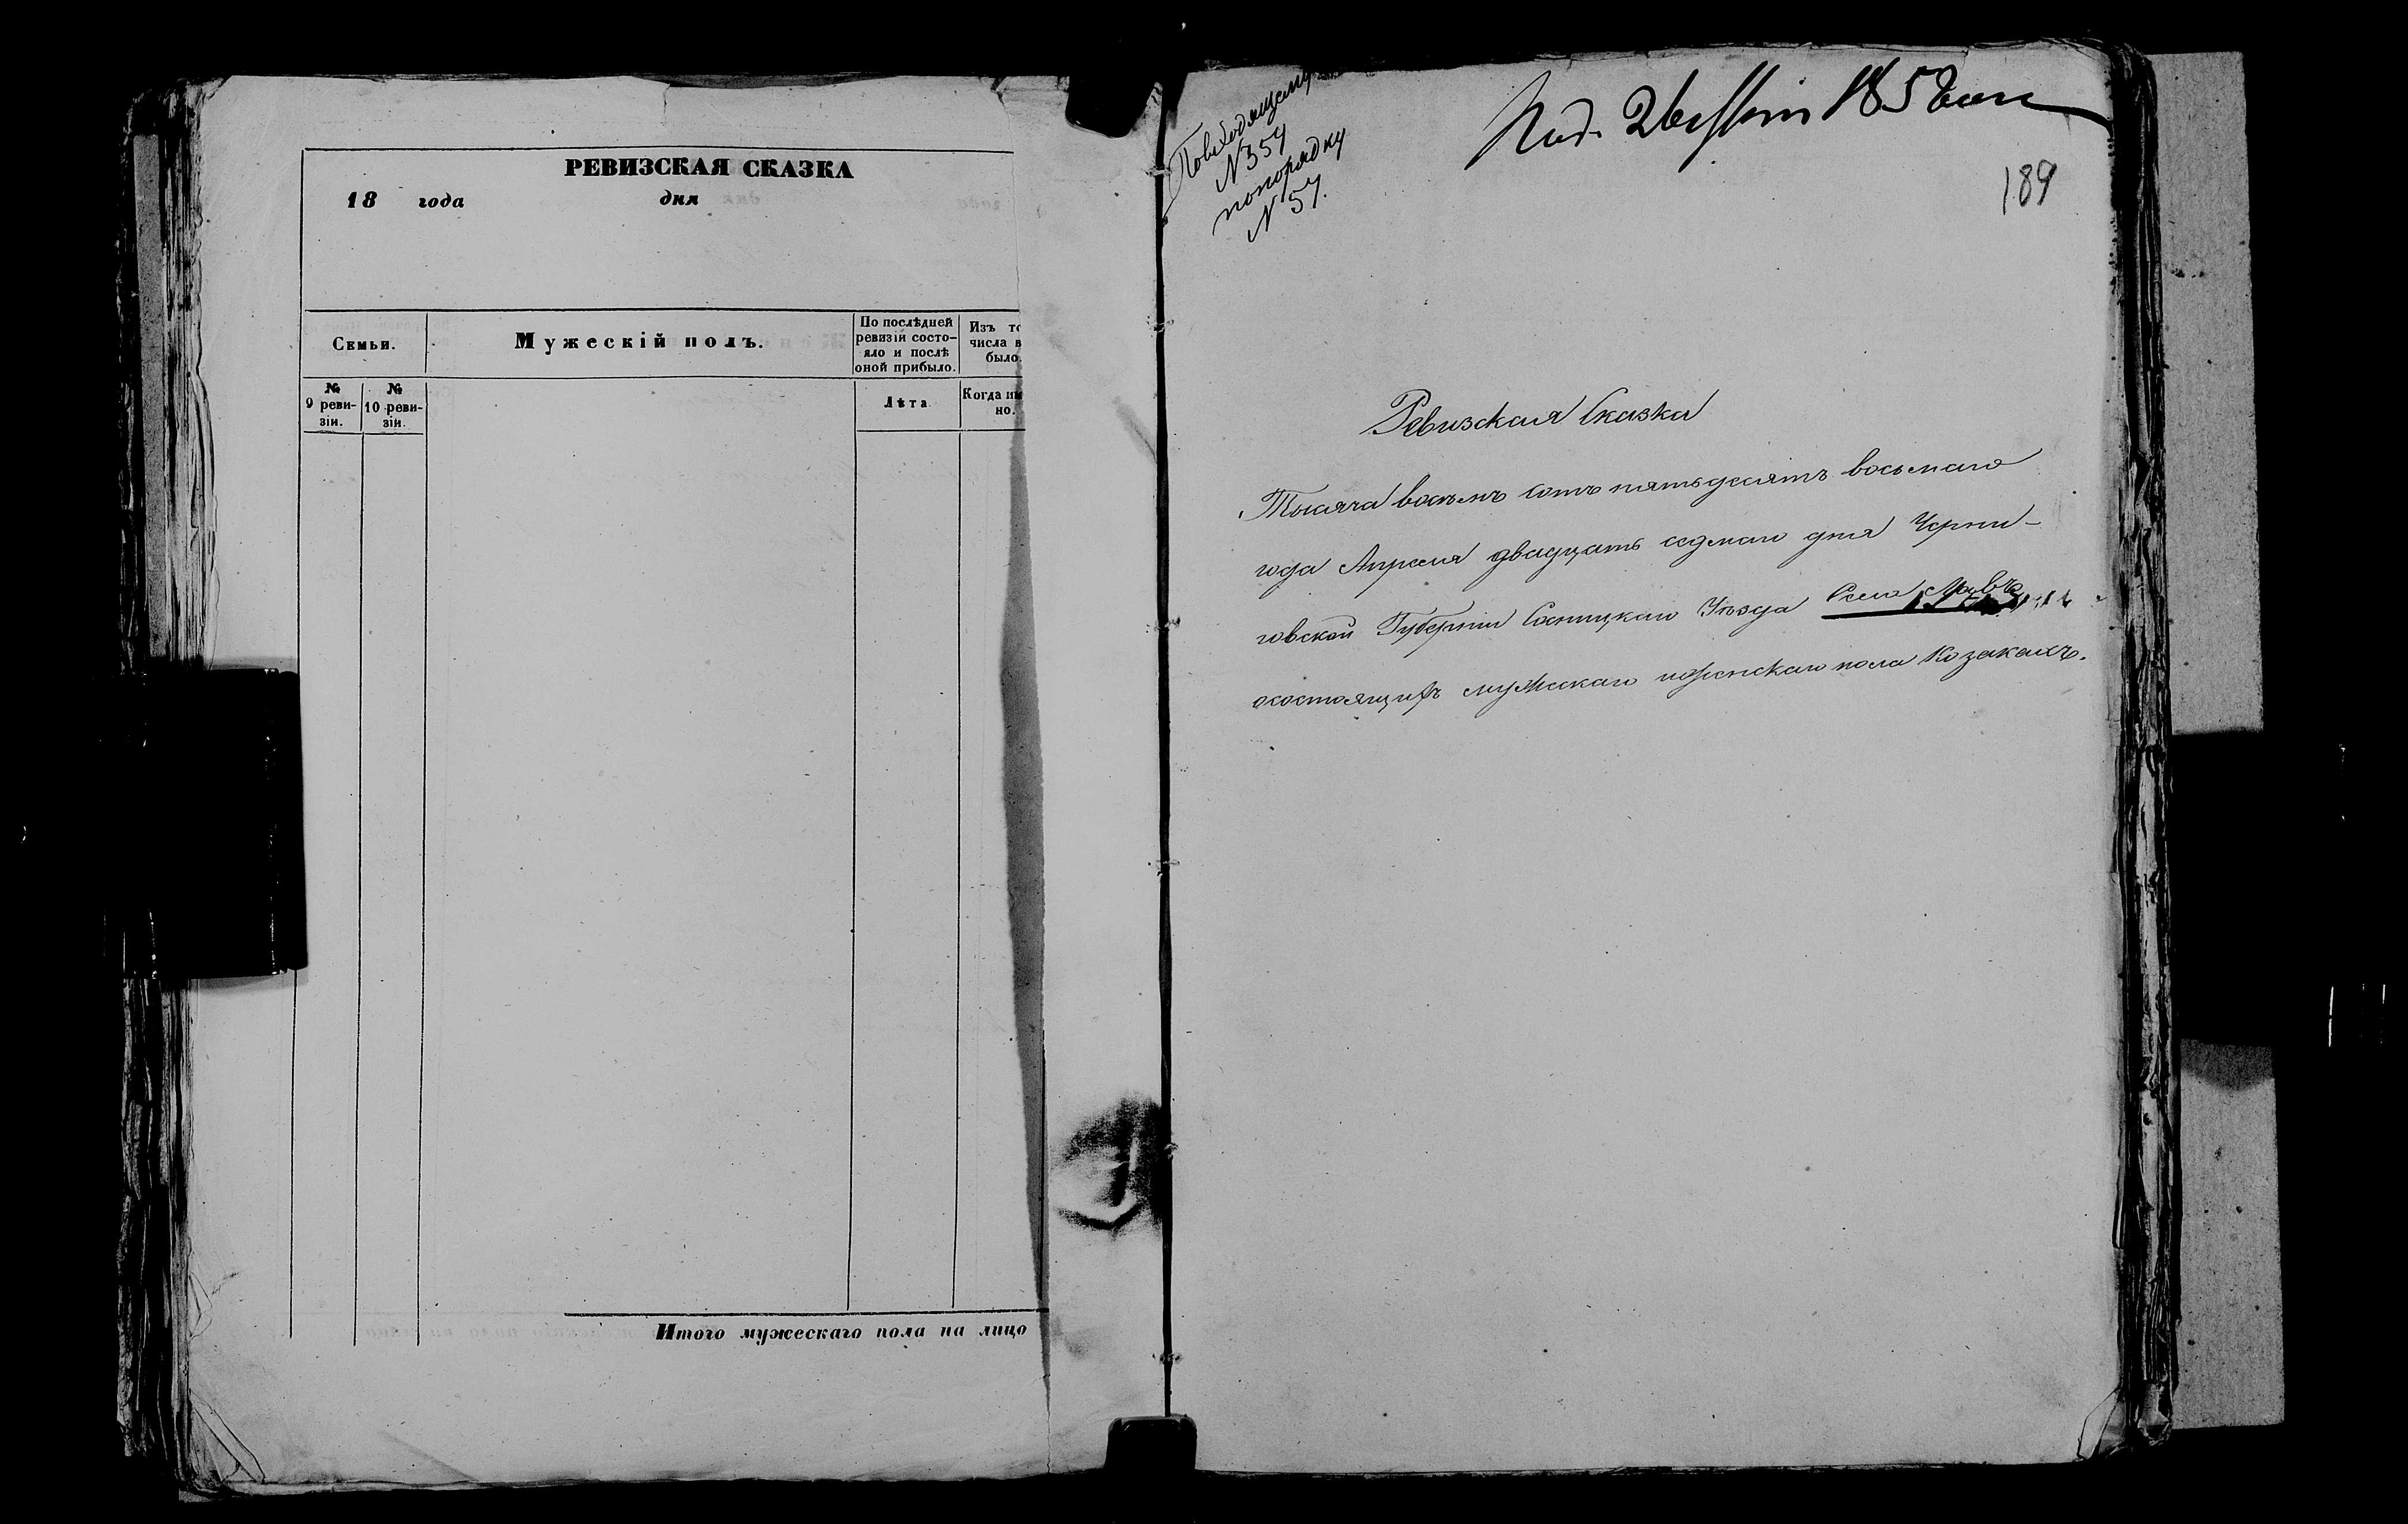 РЕВИЗСКАЯ СКАЗКА
18 года дня
Семьи.
Мужескій полъ.
По послѣдней
ревизіи состо-
яло и послѣ
оной прибыло.
Изъ то
числа в
было.
№
9 реви-
зіи.
№
10 реви-
зіи.
Лѣта
Когда им
но.
Итого мужескаго пола на лицо
Повходящему
N 354
попорядку
N 57.
189
Ревизская Сказка
Тысяча восемь сотъ пятьдесятъ восьмаго
года Апреля двадцать седмаго дня Черни-
говской Губерніи Сосницкаго Уѣзда Села
осостоящихъ мужескаго иженскаго пола Козакахъ.